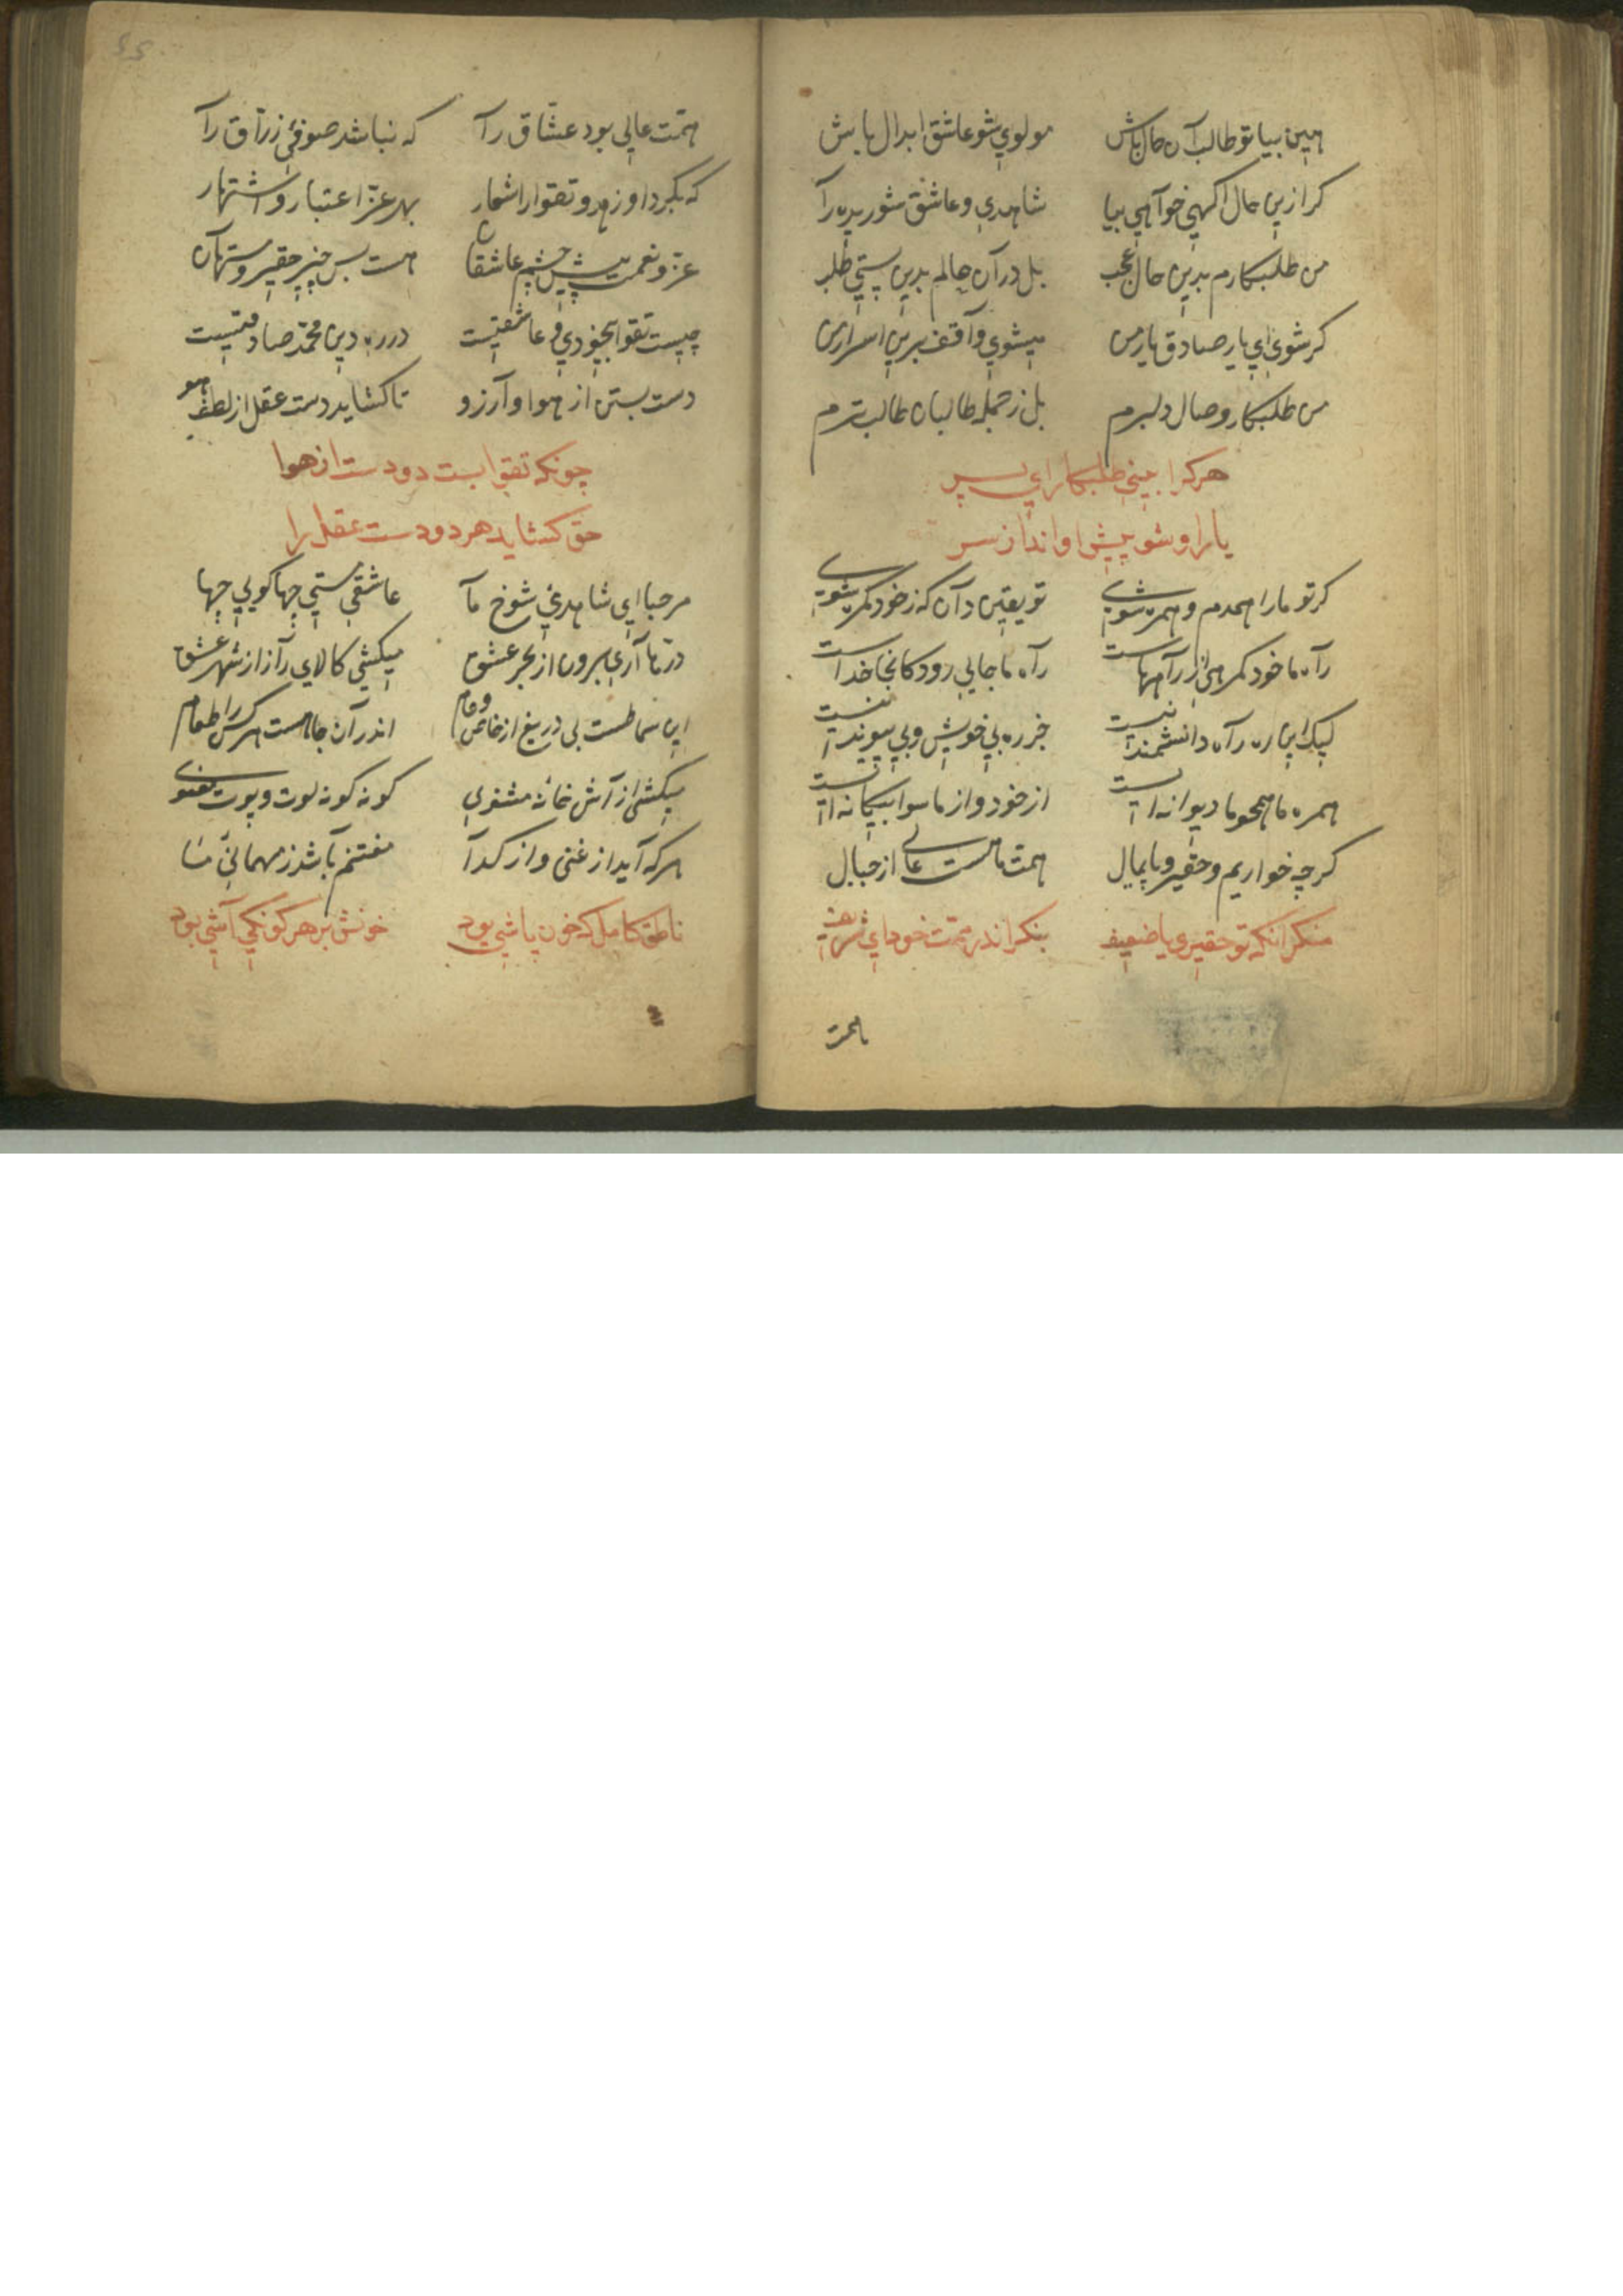 هین بیا تو طالب آن حال باش مولوی شو عاشق ابدال باش
کر ازین حال آکهی خواهی بیا شاهدی و عاشق شوریده را
من طلبکارم بدین حال عجب بل در آن حالم بدین سستی طلب
کر شوی ای یار صادق یار من میشوی واقف برین اسرار من
من طلبکار وصال دلبرم بل ز جمله طالبان طالب ترم
هر کرا بینی طلبکار ای پسر
یار او شو پیش او انداز سر
کر تو ما را همدم و همره شوی تو یقین دان که ز خود کمره شوی
راه ما خود کمرهی از راههاست راه ما جایی رود کانجا خداست
لیک این ره راه دانشمند نیست جز ره بی خویش و بی پیوند نیست
همره ما همچو ما دیوانه است از خود و از ما سوا بیکانه است
کرچه خواریم و حقیر و پایمال همت ما هست عالی از جبال
منکر آنکه تو حقیری یا ضعیف بنکر اندر همت خود ای شریف
همت
همت عالی بود عشاق را که نباشد صوفی زراق را
که بکیرد او زهد و تقوا را شعار بهر عز اعتبار و اشتهار
عز و نعمت پیش چشم عاشقان هست بس چیز حقیر و مستهان
چیست تقوا بیخودی و عاشقیست در ره دین محمد صادقیست
دست بستن از هوا و آرزو تا کشاید دست عقل از لطف هو
چونکه تقوا بست دو دست از هوا
حق کشاید هر دو دست عقل را
مرحبا ای شاهدی شوخ ما عاشقی مستی چها کویی چها
درها آری برون از بحر عشق میکشی کالای راز از شهر عشق
این سماطست بی دریغ از خاص و عام اندر آن جا هست هر کس را طعام
میکشی از آش خانه مثنوی کونه کونه لوت و پوت معنوی
هر که آید از غنی و از کدا مغتنم باشد ز مهمانی ما
ناطق کامل که خون پاشی بود خونش بر هر کونکی آشی بود